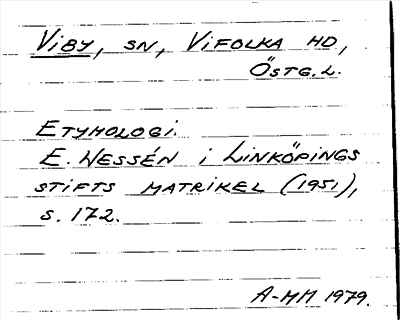 VIBY, SN, VIFOLKA HD,
ÖSTG.L.
ETYMOLOGI.
E. WESSÉN i LINKÖPINGS
STIFTS MATRIKEL (1951),
S. 172.
A-MM 1979.